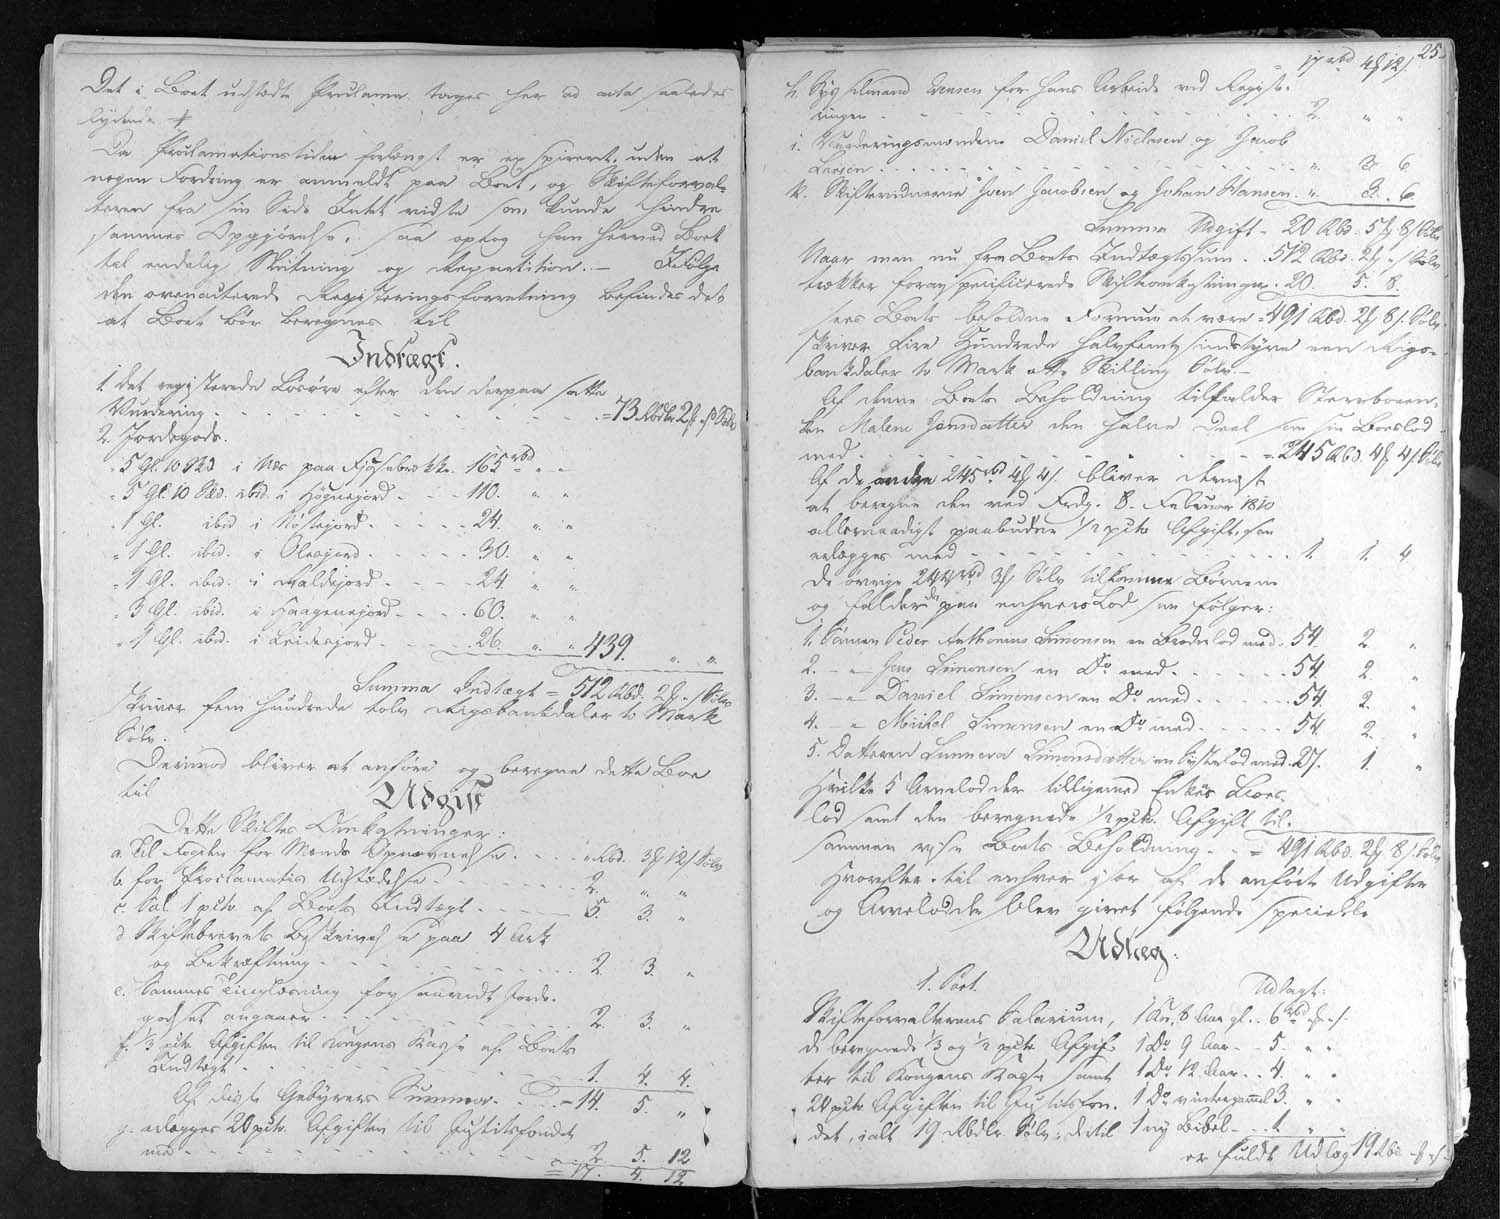 Det i Boet udstædte Proclama tages her ad acta saaledes
lydende
Da Proclamationstiden forlængst er expireret uden at
nogen Fordring er anmeldt paa Boet, og Skifteforval-
teren fra sin Side Intet vidste som kunde hindre
sammes Opgjørelse, saa optog han herved Boet
til endelig Slutning og Repartition. – Ifølge
den ovenacterede Registeringsforretning befindes det
at Boet bør beregnes til
Indtægt.
1. det registerede Løsøre efter den derpaa satte
Vurdering = 73 Rbdlr 2 ß Sølv
2. Jordegods.
5 Gl. 10 Skd i Næs paa 165 rbd " "
5 Gl. 10 Skd. ibid. i Høgnejord 110. " "
1 Gl. ibid i Nøstejord 24. " "
1 Gl. ibid. i Olesjord 30. " "
1 Gl. ibid. i 24 " "
3 Gl. ibid. i Haagenejord 60. " "
1 Gl. ibid. i 26. " " 439. " "
Summa Indtægt = 512 Rbd. 2 ß Sølv
skriver fem hundrede tolv Rigsbankdaler to Mark
Sølv.
Derimod bliver at anføre og beregne dette Boe
til
Udgift
Dette Skiftes Omkostninger:
a. Til Fogden for Mænds Opnævnelse " Rbd. 3 12 Sølv
b. for Proclamatis Udstædelse 2. " "
c. Sal. 1 pCto af Boets Indtægt 5. 3. "
d Skiftebrevets Beskrivelse paa 4 Ark
og Bekræftning 2. 3. "
e. Sammes Tinglæsning forsaavidt Jorde-
godset angaaer 2. 3. "
f. 1/3 pCto Afgiften til Kongens Kasse af Boets
Indtægt 1. 4. 4.
Af disse Gebyrers Summa 14. 5. "
g. erlægges 20 pCto. Afgiften til Justitsfondet
med 2. 5. 12
= 17. 4. 12
25.
17 rbd 4 12
h. Sysselmand Jensen for hans Arbeide ved Registe-
ringen 2. " "
i. Vurderingsmændene Daniel Niclasen og Jacob
Larsen " 3. 6
k. Skiftevidnerne Joen Jacobsen og Johan Hansen " 3. 6
Summa Udgift = 20 Rbd 5 8 Sølv
Naar man nu fra Boets Indtægtssum 512 Rbd. 2 " Sølv
trækker foranspecificerede Skifteomkostninger 20. 5. 8.
sees Boets beholdne Formue at være = 491 Rbd. 2 8 Sølv
skriver fire Hundrede halvfemtesindstyve een Rigs-
bankdaler to Mark otte Skilling Sølv –
Af denne Boets Beholdning tilfalder Stervboeen-
ken Malene Jensdatter den halve Deel som sin Boeslod
med = 245 Rbd 4 4 Sølv
Af de andre 245 rbd 4 4 bliver dernæst
at beregne den ved Frdg. 8. Februar 1810
allernaadigst paabudne 1/2 pCto Afgift, som
erlægges med 1. 1. 4
De øvrige 244 rbd 3 Sølv tilkomme Børnene
og falder da paa enhvers Lod som følger:
1. Sønnen Peder Anthonius Simonsen en Broderlod med 54. 2 "
2. – " Jens Simonsen en Do med 54. 2 "
3. – " Daniel Simonsen en Do med 54. 2. "
4. – " Mikkel Simonsen en Do med 54. 2. "
5. Datteren Sunneva Simonsdatter en Søsterlod med 27. 1. "
Hvilke 5 Arvelodder tilligemed Enkes Boes-
lod samt den beregnede 1/2 pCto. Afgift til-
sammen vise Boets Beholdning = 491 Rbd 2 8 Sølv
Hvorefter til enhver især af de anførte Udgifter
og Arvelodder blev givet følgende specielle
Udlæg:
1. Post.
Udlagt:
Skifteforvalterens Salarium, 1 Koe, 6 Aar gl. 6 rbd
de beregnede 1/3 og 1/2 pCto. Afgif- 1 Do 9 Aar 5. " "
ter til Kongens Kasse samt 1 Do 12 Aar 4. " "
20 pCto. Afgiften til Justitsfon- 1 Do vintergammel 3. " "
det, ialt 19 Rbdlr Sølv; dertil 1 ny Bibel 1 " "
er fuldt Udlæg 19 Rbd